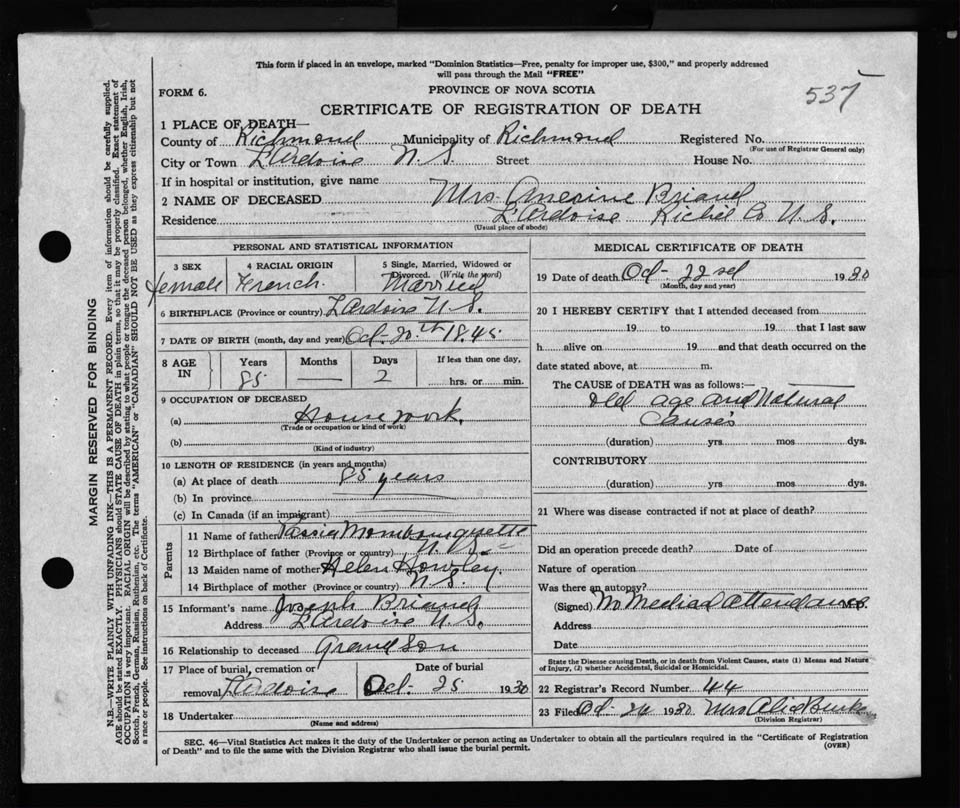 This form if placed in an envelope, marked "Dominion Statistics—Free, penalty for improper use, $300," and properly addressed
will pass through the Mail "FREE"
537
FORM 6.
PROVINCE OF NOVA SCOTIA
CERTIFICATE OF REGISTRATION OF DEATH
1 PLACE OF DEATH—
County of Richmond Municipality of Richmond Registered No.
(For use of Registrar General only)
City or Town L'Ardoise N.S. Street House No.
If in hospital or institution, give name
2 NAME OF DECEASED Mrs Briand
Residence L'Ardoise Co N.S.
(Usual place of abode)
PERSONAL AND STATISTICAL INFORMATION
3 SEX
Female
4 RACIAL ORIGIN
French.
5 Single, Married, Widowed or
Divorced. (Write the word)
Married
6 BIRTHPLACE (Province or country) L'Ardoise N.S.
7 DATE OF BIRTH (month, day and year) Oct. 20th 1845
8 AGE IN
Years
85
Months
—
Days
2
If less than one day,
hrs. or min.
9 OCCUPATION OF DECEASED
(a) House work.
(Trade or occupation or kind of work)
(b)
(Kind of industry)
10 LENGTH OF RESIDENCE (in years and months)
(a) At place of death 85 years
(b) In province
(c) In Canada (if an immigrant)
Parents
11 Name of father Mombourquette
12 Birthplace of father (Province or country) N.S.
13 Maiden name of mother Helen Howley
14 Birthplace of mother (Province or country) N.S.
15 Informant's name Joseph Briand
Address L'Ardoise N.S.
16 Relationship to deceased Grand Son
17 Place of burial, cremation or
removal L'Ardoise
Date of burial
Oct. 25 1930
18 Undertaker
(Name and address)
MEDICAL CERTIFICATE OF DEATH
19 Date of death Oct- 22 1930
(Month, day and year)
20 I HEREBY CERTIFY that I attended deceased from
19 to 19 that I last saw
h alive on 19 and that death occurred on the
date stated above, at m.
The CAUSE OF DEATH was as follows:—
Old age and Natural
Causes
(duration) yrs. mos dys.
CONTRIBUTORY
(duration) yrs. mos. dys.
21 Where was disease contracted if not at place of death?
Did an operation precede death? Date of
Nature of operation
Was there an autopsy?
(Signed) No Medical Attendance M.D.
Address
Date
State the Disease causing Death, or in death from Violent Causes, state (1) Means and Nature
of Injury, (2) whether Accidental, Suicidal or Homicidal.
22 Registrar's Record Number 44
23 Filed Oct- 1930 Mrs
(Division Registrar)
SEC. 46—Vital Statistics Act makes it the duty of the Undertaker or person acting as Undertaker to obtain all the particulars required in the "Certificate of Registration
of Death" and to file the same with the Division Registrar who shall issue the burial permit.
(OVER)
MARGIN RESERVED FOR BINDING
N.B.—WRITE PLAINLY WITH UNFADING INK—THIS IS A PERMANENT RECORD. Every item of information should be carefully supplied.
AGE should be stated EXACTLY. PHYSICIANS should STATE CAUSE OF DEATH in plain terms, so that it may be properly classified. Exact statement of
OCCUPATION is very important. RACIAL ORIGIN will be described by stating to what people or tongue the deceased person belonged, whether English, Irish,
Scotch, French, German, Russian, Ruthenian, etc. The terms "AMERICAN" or "CANADIAN" SHOULD NOT BE USED as they express citizenship but not
a race or people. See instructions on back of Certificate.